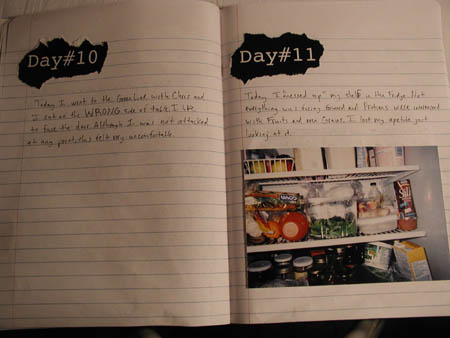 Day#10
Today I went to the Green Line with Chris and
I sat on the WRONG side of table. I like
to face the door. Although I was not attacked
at any point, this felt very uncomfortable.
Day#11
Today I "messed up" my shelf in the fridge. Not
everything was facing forward and Proteins were intermixed
with Fruits and even Grains. I lost my apetite just
looking at it.